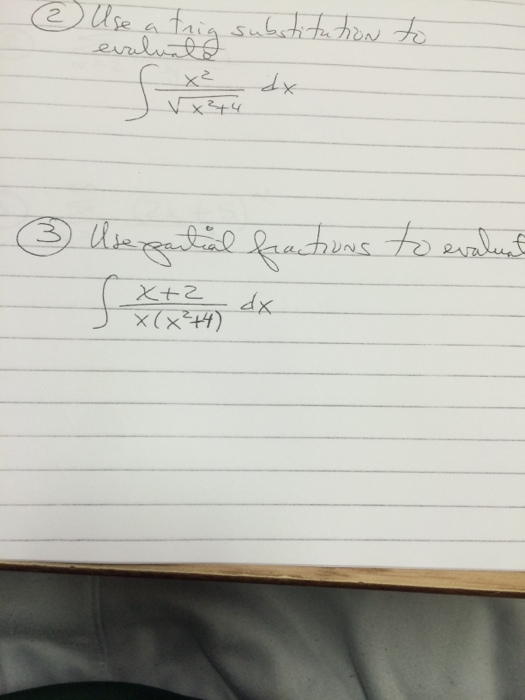 ② Use a trig substitution to
evaluate
∫ x²/√(x²+4) dx
③ Use partial fractions to evaluat
∫ (x+2)/(x(x²+4)) dx